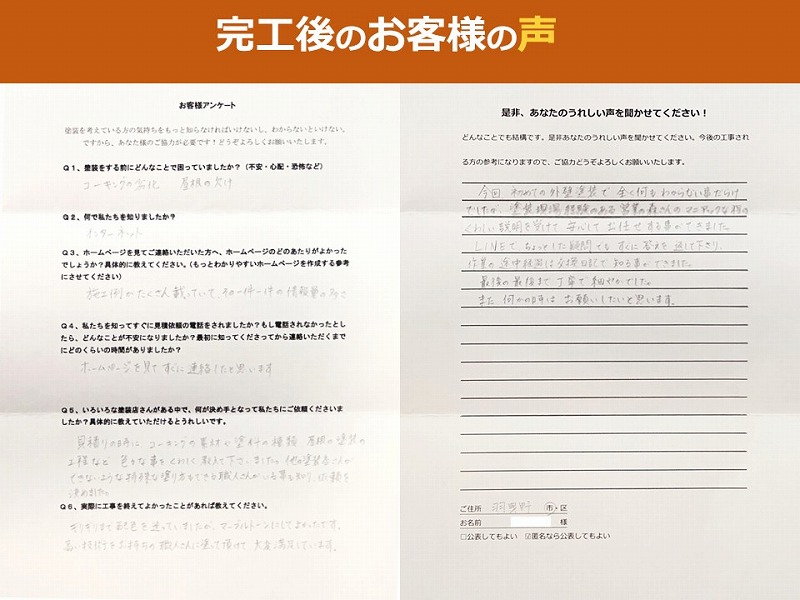 完工後のお客様の声
お客様アンケート
塗装を考えている方の気持ちをもっと知らなければいけないし、わからないといけない。
ですから、あなた様のご協力が必要です！どうぞよろしくお願いいたします。
Q1、塗装をする前にどんなことで困っていましたか？（不安・心配・恐怖など）
コーキングの劣化　屋根の欠け
Q2、何で私たちを知りましたか？
インターネット
Q3、ホームページを見てご連絡いただいた方へ、ホームページのどのあたりがよかった
でしょうか？具体的に教えてください。（もっとわかりやすいホームページを作成する参考
にさせてください）
施工例がたくさん載っていて、その一件一件の情報量の多さ
Q4、私たちを知ってすぐに見積依頼の電話をされましたか？もし電話されなかったとし
たら、どんなことが不安になりましたか？最初に知ってくださってから連絡いただくまで
にどのくらいの時間がありましたか？
ホームページを見てすぐに連絡したと思います
Q5、いろいろな塗装店さんがある中で、何が決め手となって私たちにご依頼くださいま
したか？具体的に教えていただけるとうれしいです。
見積りの時に コーキングの素材や塗料の種類、屋根の塗装の
工程など 色々な事をくわしく教えて下さいました。他の塗装屋さんが
できないような特殊な塗り方もできる職人さんがいる事も知り、依頼を
決めました。
Q6、実際に工事を終えてよかったことがあれば教えてください。
ぎりぎりまで配色を迷っていましたが、マーブルトーンにしてよかったです。
高い技術をお持ちの職人さんに塗って頂けて、大変満足しています。
是非、あなたのうれしい声を聞かせてください！
どんなことでも結構です。是非あなたのうれしい声を聞かせてください。今後の工事され
る方の参考になりますので、ご協力どうぞよろしくお願いいたします。
今回 初めての外壁塗装で 全く何もわからない事だらけ
でしたが、塗装現場経験のある営業の森さんのマニアックな程の
くわしい説明を受けて 安心して お任せする事ができました。
LINEで、ちょっとした疑問でも すぐに 答えを 返して下さり、
作業の途中経過は交換日記で 知る事ができました。
最後の最後まで 丁寧で 細やかでした。
また 何かの時は お願いしたいと思います。
ご住所 羽曳野 市・区
お名前 様
□公表してもよい ☑匿名なら公表してもよい